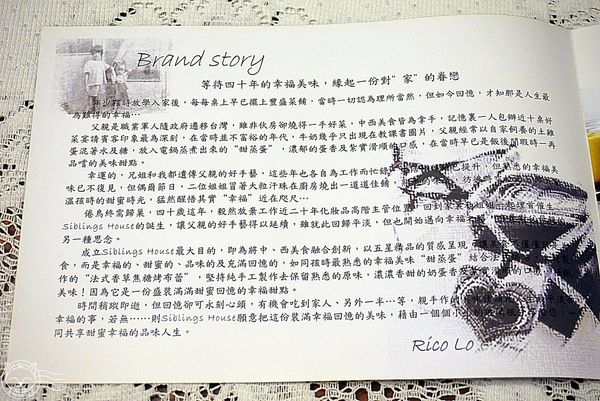 Brand story
等待四十年的幸福美味，緣起一份對"家"的眷戀
年少孩時放學入家後，每每桌上早已擺上豐盛菜餚，當時一切認為理所當然，但如今回憶，才知那是人生最
為難得的幸福…
父親是職業軍人隨政府遷移台灣，雖非伙房卻燒得一手好菜，中西美食皆為拿手，記憶裏一人包辦近十桌好
菜宴請賓客印象最為深刻，在當時並不富裕的年代，牛奶幾乎只出現在教課書圖片，父親經常以自家飼養的土雞
蛋混著水及糖，放入電鍋蒸煮出來的"甜蒸蛋"，濃郁的蛋香及紮實滑順的口感，在當時早已是飯後閒暇時一再
品嚐的美味甜點。
幸運的，兄姐和我都遺傳父親的好手藝，這些年也各自為工作而忙
味已不復見，但偶爾節日，二位姐姐冒著大粒汗珠在廚房燒出一道道佳餚
溫孩時的甜蜜時光，猛然醒悟其實"幸福"近在咫尺…
倦鳥終需歸巢，四十歲這年，毅然放棄工作近二十年化妝品高階主管位置
Siblings House的誕生，讓父親的好手藝得以延續，雖就此回歸平淡，但也開始邁向幸福
另一種思念。
成立Siblings House最大目的，即為將中、西美食融合創新，以五星精品的質感呈現
食，而是幸福的、甜蜜的、品味的及充滿回憶的，如同孩時最熟悉的幸福美味"甜蒸蛋"結合法
作的"法式香草焦糖烤布蕾"，堅持純手工製作去保留熟悉的原味，濃濃香甜的奶蛋香
美味！因為它是一份盛裝滿滿甜蜜回憶的幸福甜點。
時間稍蹤即逝，但回憶卻可永刻心頭，有機會吃到家人、另外一半…等，親手作的
幸福的事，若無……則Siblings House願意把這份裝滿幸福回憶的美味，藉由一個個小
同共享甜蜜幸福的品味人生。
Rico Lo